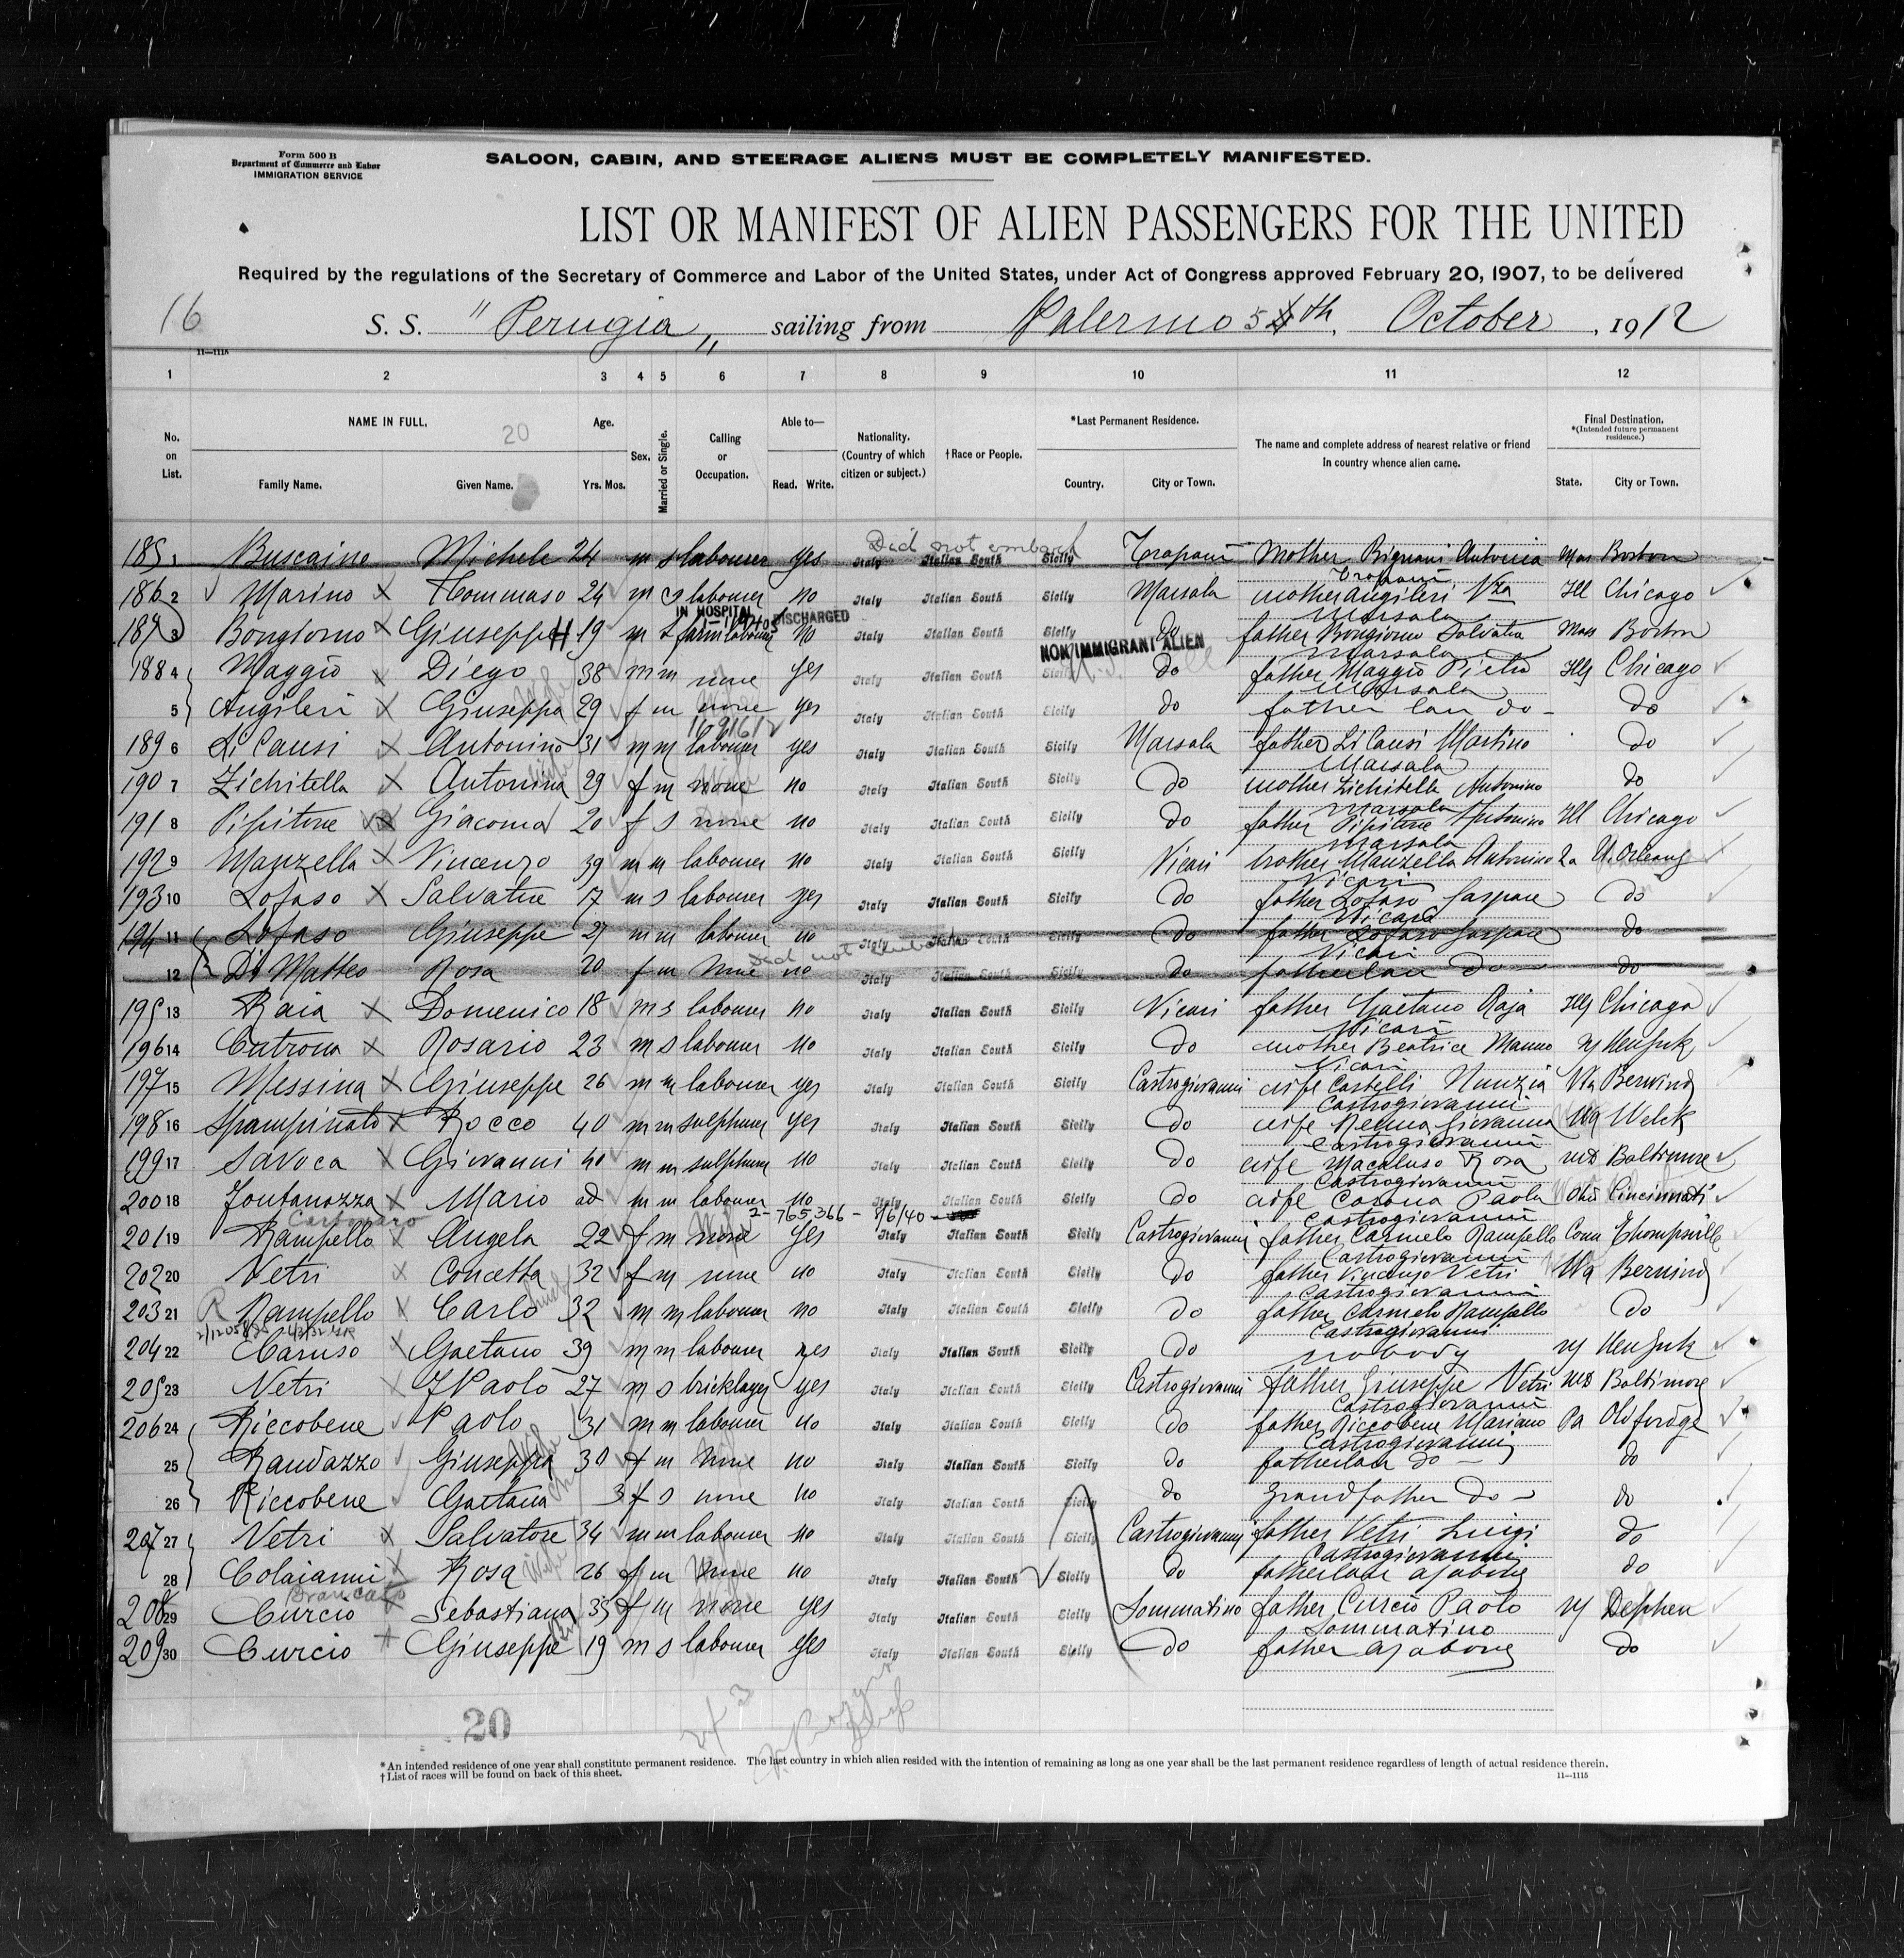 Form 500 B
Department of Commerce and Labor
IMMIGRATION SERVICE
SALOON, CABIN, AND STEERAGE ALIENS MUST BE COMPLETELY MANIFESTED.
LIST OR MANIFEST OF ALIEN PASSENGERS FOR THE UNITED
Required by the regulations of the Secretary of Commerce and Labor of the United States, under Act of Congress approved February 20, 1907, to be delivered
16 S. S. "Perugia" sailing from Palermo 5th October, 1912
11—1115
1 2 3 4 5 6 7 8 9 10 11 12
No. on List. NAME IN FULL. Family Name. Given Name. 20 Age. Yrs. Mos. Sex. Married or Single. Calling or Occupation. Able to— Read. Write. Nationality. (Country of which citizen or subject.) †Race or People. *Last Permanent Residence. Country. City or Town. The name and complete address of nearest relative or friend in country whence alien came. Final Destination. *(Intended future permanent residence.) State. City or Town.
Did not embark
185 1 Buscaino Michele 24 m s labourer yes Italy Italian South Sicily Trapani Mother Antonia Mas Boston
Trapani
186 2 Marino Tommaso 24 m labourer no Italy Italian South Sicily Marsala mother Angileri Vza Ill Chicago
IN HOSPITAL DISCHARGED
Marsala
187 3 Bongiorno Giuseppe 19 m s farm labourer No Italy Italian South Sicily do father Bongiorno Salvatre Mass Boston
NON IMMIGRANT ALIEN
Marsala
188 4 Maggio Diego 38 m m none yes Italy Italian South Sicily do father Maggio Pietro Ills Chicago
Marsala
5 Angileri Giuseppa Wife 29 f m none yes Italy Italian South Sicily do father lau do do
189 6 Li Causi Antonino 31 m m labourer yes Italy Italian South Sicily Marsala father Li Causi Martino do
Marsala
190 7 Zichitella Antonina 29 f m none no Italy Italian South Sicily do mother Zichitella Antonino do
Marsala
191 8 Pipitone Giacoma 20 f s none no Italy Italian South Sicily do father Pipitone Antonino Ill Chicago
Marsala
192 9 Manzella Vincenzo 39 m m labourer no Italy Italian South Sicily Vicari brother Manzella Antonino La N. Orleans
Vicari
193 10 Lofaso Salvatre 17 m s labourer yes Italy Italian South Sicily do father Lofaso Gaspare do
Vicari
194 11 Lofaso Giuseppe 27 m m labourer no Italy Italian South Sicily do father Lofaso Gaspare do
Did not embark
Vicari
12 Di Matteo Rosa 20 f m none no Italy Italian South Sicily do fatherlau do do
195 13 Raia Domenico 18 m s labourer no Italy Italian South Sicily Vicari father Gaetano Raja Ills Chicago
Vicari
196 14 Cutrona Rosario 23 m s labourer no Italy Italian South Sicily do mother Beatrice Manno ny
Vicari
197 15 Messina Giuseppe 26 m m labourer yes Italy Italian South Sicily Castrogiovanni wife Castelli Nunzia Wa Berwind
Castrogiovanni
198 16 Spampinato Rocco 40 m m sulphurer yes Italy Italian South Sicily do wife Giovanna Wa Welck
Castrogiovanni
199 17 Savoca Giovanni 40 m m sulphurer no Italy Italian South Sicily do wife Macaluso Rosa MD Baltimore
Castrogiovanni
200 18 Fontanazza Mario ad m m labourer no Italy Italian South Sicily do wife Corona Paola Ohio Cincinnati
2-765366 - 8/6/40
Castrogiovanni
201 19 Rampello Angela 22 f m none yes Italy Italian South Sicily Castrogiovanni father Carmelo Rampello Conn Thompsville
Castrogiovanni
202 20 Vetri Concetta 32 f m none no Italy Italian South Sicily do father Vincenzo Vetri Wa Berwind
Castrogiovanni
203 21 Rampello Carlo 32 m m labourer no Italy Italian South Sicily do father Carmelo Rampello do
Castrogiovanni
204 22 Caruso Gaetano 39 m m labourer yes Italy Italian South Sicily do nobody ny
205 23 Vetri Paolo 27 m s bricklayer yes Italy Italian South Sicily Castrogiovanni father Giuseppe Vetri MD Baltimore
Castrogiovanni
206 24 Riccobene Paolo 31 m m labourer no Italy Italian South Sicily do father Riccobene Mariano Pa Old fordge
Castrogiovanni
25 Randazzo Giuseppa Wife 30 f m none no Italy Italian South Sicily do fatherlau do do
26 Riccobene Gaetana 3 f s none no Italy Italian South Sicily do grandfather do do
207 27 Vetri Salvatore 34 m m labourer no Italy Italian South Sicily Castrogiovanni father Vetri Luigi do
Castrogiovanni
28 Colaianni Rosa Wife 26 f m none no Italy Italian South Sicily do fatherlau as above do
Brancato
208 29 Curcio Sebastiana 35 f m none yes Italy Italian South Sicily Sommatino father Curcio Paolo ny Dephen
Sommatino
209 30 Curcio Giuseppe 19 m s labourer yes Italy Italian South Sicily do father as above do
20
*An intended residence of one year shall constitute permanent residence. The last country in which alien resided with the intention of remaining as long as one year shall be the last permanent residence regardless of length of actual residence therein.
†List of races will be found on back of this sheet.
11—1115